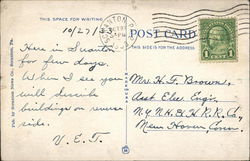 THIS SPACE FOR WRITING
10/27/33
Here in Scranton
for few days.
When I see you
will describe
buildings on reverse
side.
V.E.T.
SCRANTON P
POST CARD
THIS SIDE IS FOR THE ADDRESS
1 CENT 1
Mr. H. F. Brown,
Asst Elec. Engr.
N.Y.N.H. & H. R.R. Co.
New Haven Conn